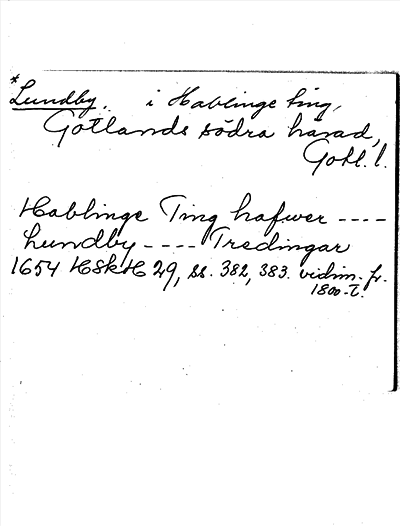 *Lundby, i Hablinge ting,
Gotlands södra härad,
Gotl. l.
Hablinge Ting hafwer ----
Lundby ---- Tredingar
1654 HSkH 29, ss. 382, 383. vidim. fr.
1800-t.